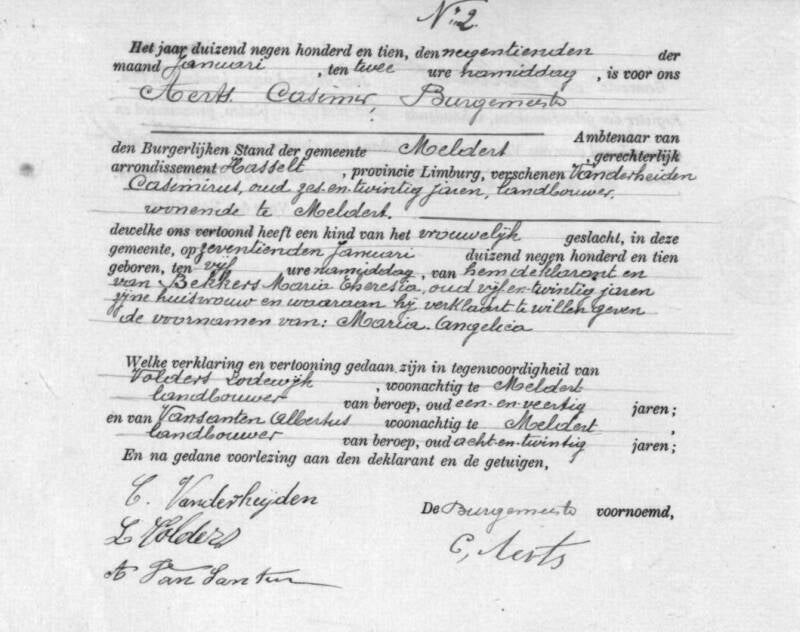 Nr 2.
Het jaar duizend negen honderd en tien, den negentienden der
maand Januari , ten twee ure namiddag , is voor ons
Aerts Casimir, Burgemeester
Ambtenaar van
den Burgerlijken Stand der gemeente Meldert , gerechterlijk
arrondissement Hasselt , provincie Limburg, verschenen Vanderheiden
Casimirus, oud zes-en-twintig jaren, landbouwer,
wonende te Meldert.
dewelke ons vertoond heeft een kind van het vrouwelijk geslacht, in deze
gemeente, op zeventienden Januari duizend negen honderd en tien
geboren, ten vijf ure namiddag , van hem deklarant en
van Bekkers Maria Theresia, oud vijf-en-twintig jaren
zijne huisvrouw en waaraan hij verklaart te willen geven
de voornamen van: Maria-Angelica
Welke verklaring en vertooning gedaan zijn in tegenwoordigheid van
Volders Lodewijk , woonachtig te Meldert
landbouwer van beroep, oud een-en-veertig jaren;
en van Vansanten Albertus woonachtig te Meldert ,
landbouwer van beroep, oud acht-en-twintig jaren;
En na gedane voorlezing aan den deklarant en de getuigen,
C. Vanderheijden
De Burgemeester voornoemd,
L Volders
C, Aerts
A Van Santen